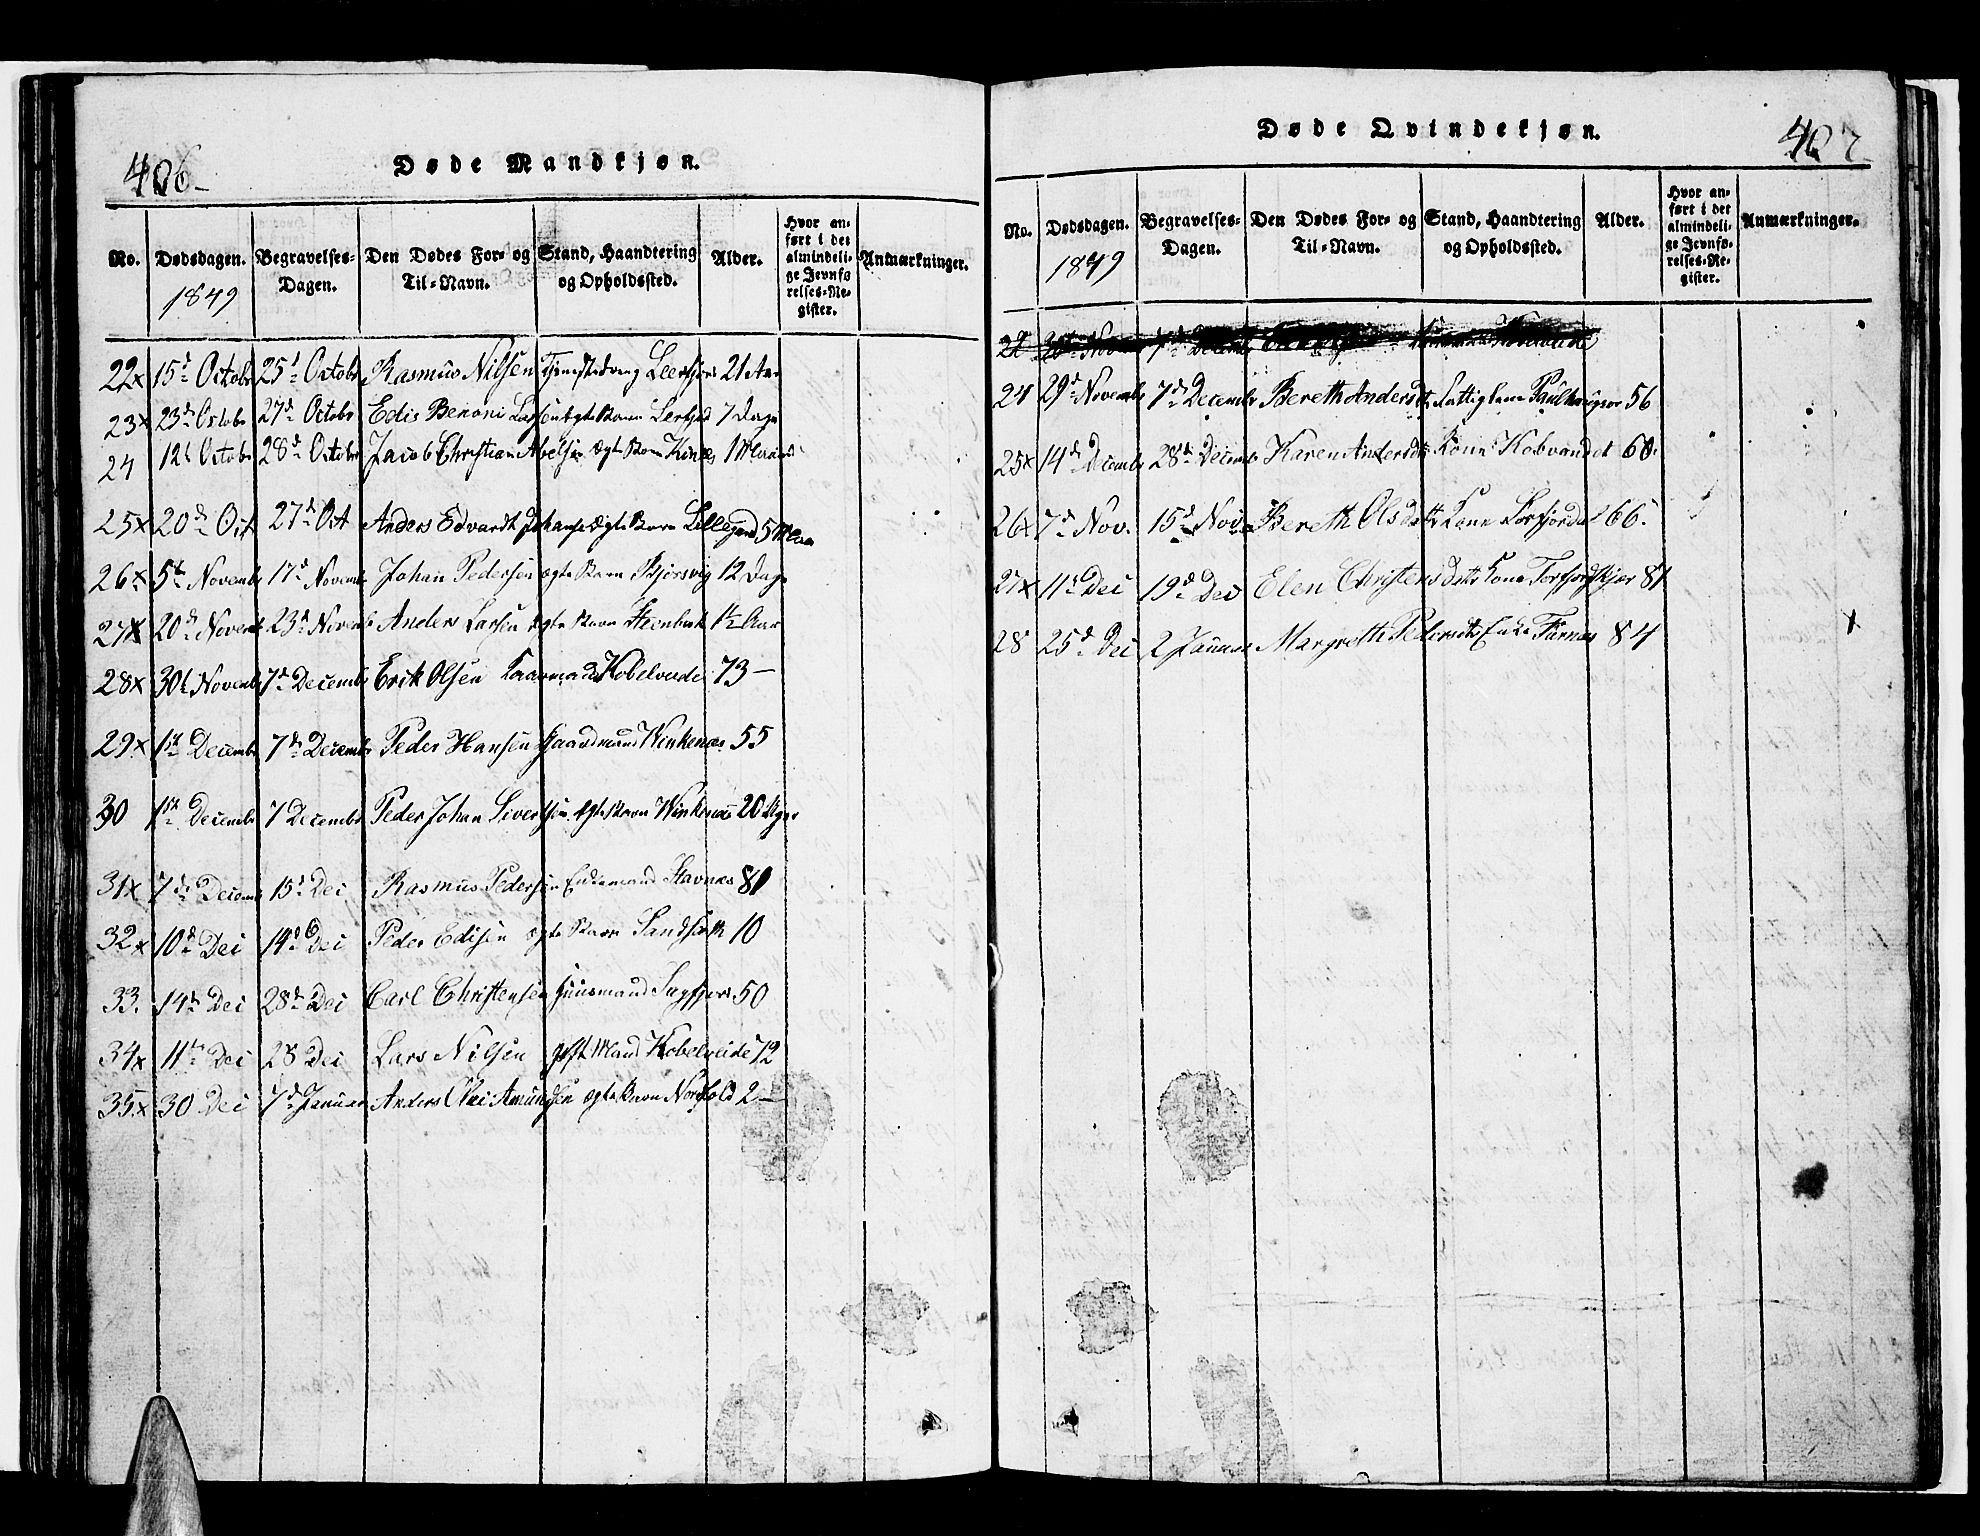 406-
Døde Mandkjøn.
No. Dødsdagen. 1849 Begravelses-Dagen. Den Dødes For- og Til-Navn. Stand, Haandtering og Opholdssted. Alder. Hvor anført i det almindelige Jevnførelses-Register. Anmærkninger.
22x 15d Octobr 25d Octobr Rasmus Nilsen 21 Aar
23x 23d Octobr 27d Octobr Edis Benoni Larsen ægte Barn 7 Dage
24 12t Octobr 28d Octobr Jacob Christian Abelsen ægte Barn 1 Maaned
25x 20d Oct 27d Oct Anders Edvardt Johanse ægte Barn 5 Maa
26x 5t Novembr 17d Novembr Johan Pedersen ægte Barn 12 Dage
27x 20d Novembr 23d Novembr Anders Larsen ægte Barn 1½ Aar
28x 30t Novembr 7d Decembr Erik Olsen Kaarmand Kobelveide 73 —
29x 1st Decembr 7d Decembr Peder Hansen Gaardmand Winkenæs 55
30 1st Decembr 7 Decembr Peder Johan Sivertsen ægte Barn Winkenæs 20 Uger
31x 7d Decemb 15d Dec Rasmus Pedersen Enkemand 81
32x 10d Dec 14d Dec Peder Edisen ægte Barn 10
33. 14d Dec 28d Dec Carl Christensen Huusmand Sagfjord 50
34x 11te Dec 28 Dec Lars Nilsen gift Mand Kobelveide 72
35x 30 Dec 7d Januar Anders Amundsen ægte Barn Nordfold 2 —
407
Døde Qvindekjøn.
No. Dødsdagen. 1849 Begravelses-Dagen. Den Dødes For- og Til-Navn. Stand, Haandtering og Opholdssted. Alder. Hvor anført i det almindelige Jevnførelses-Register. Anmærkninger.
24 29d Novembr 7d Decembr Bereth Andersdtr 56
25x 14d Decembr 28d Decemb Karen Andersdtr Kone Kobvandet 60.
26x 7d Nov. 15d Nov. Bereth Olsdattr Kone 66.
27x 11t Dec 19d Dec Elen Christensdattr Kone 81
28 25d Dec 2 Januar Margreth Pedersdtr Enke 84 x